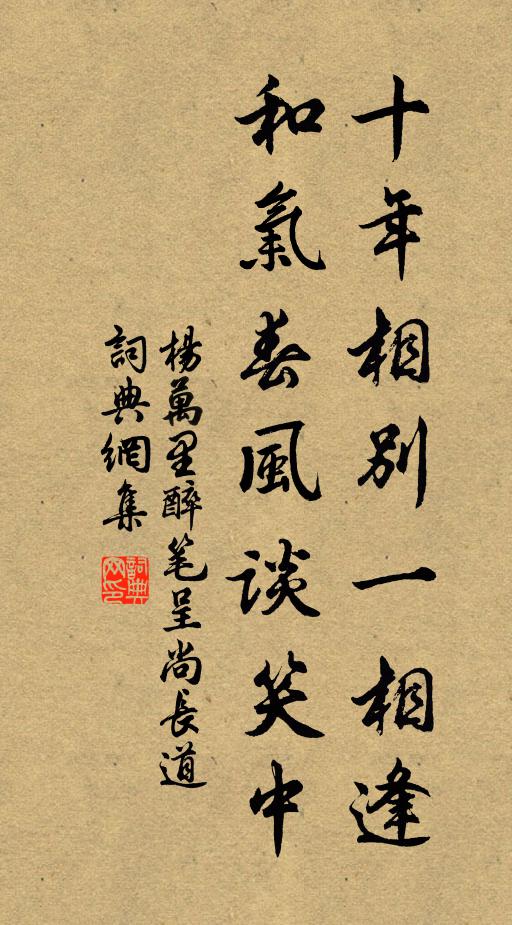 十年相別一相逢
和氣春風談笑中
楊萬里醉笔呈尚長道
詞典網集
詞典网印